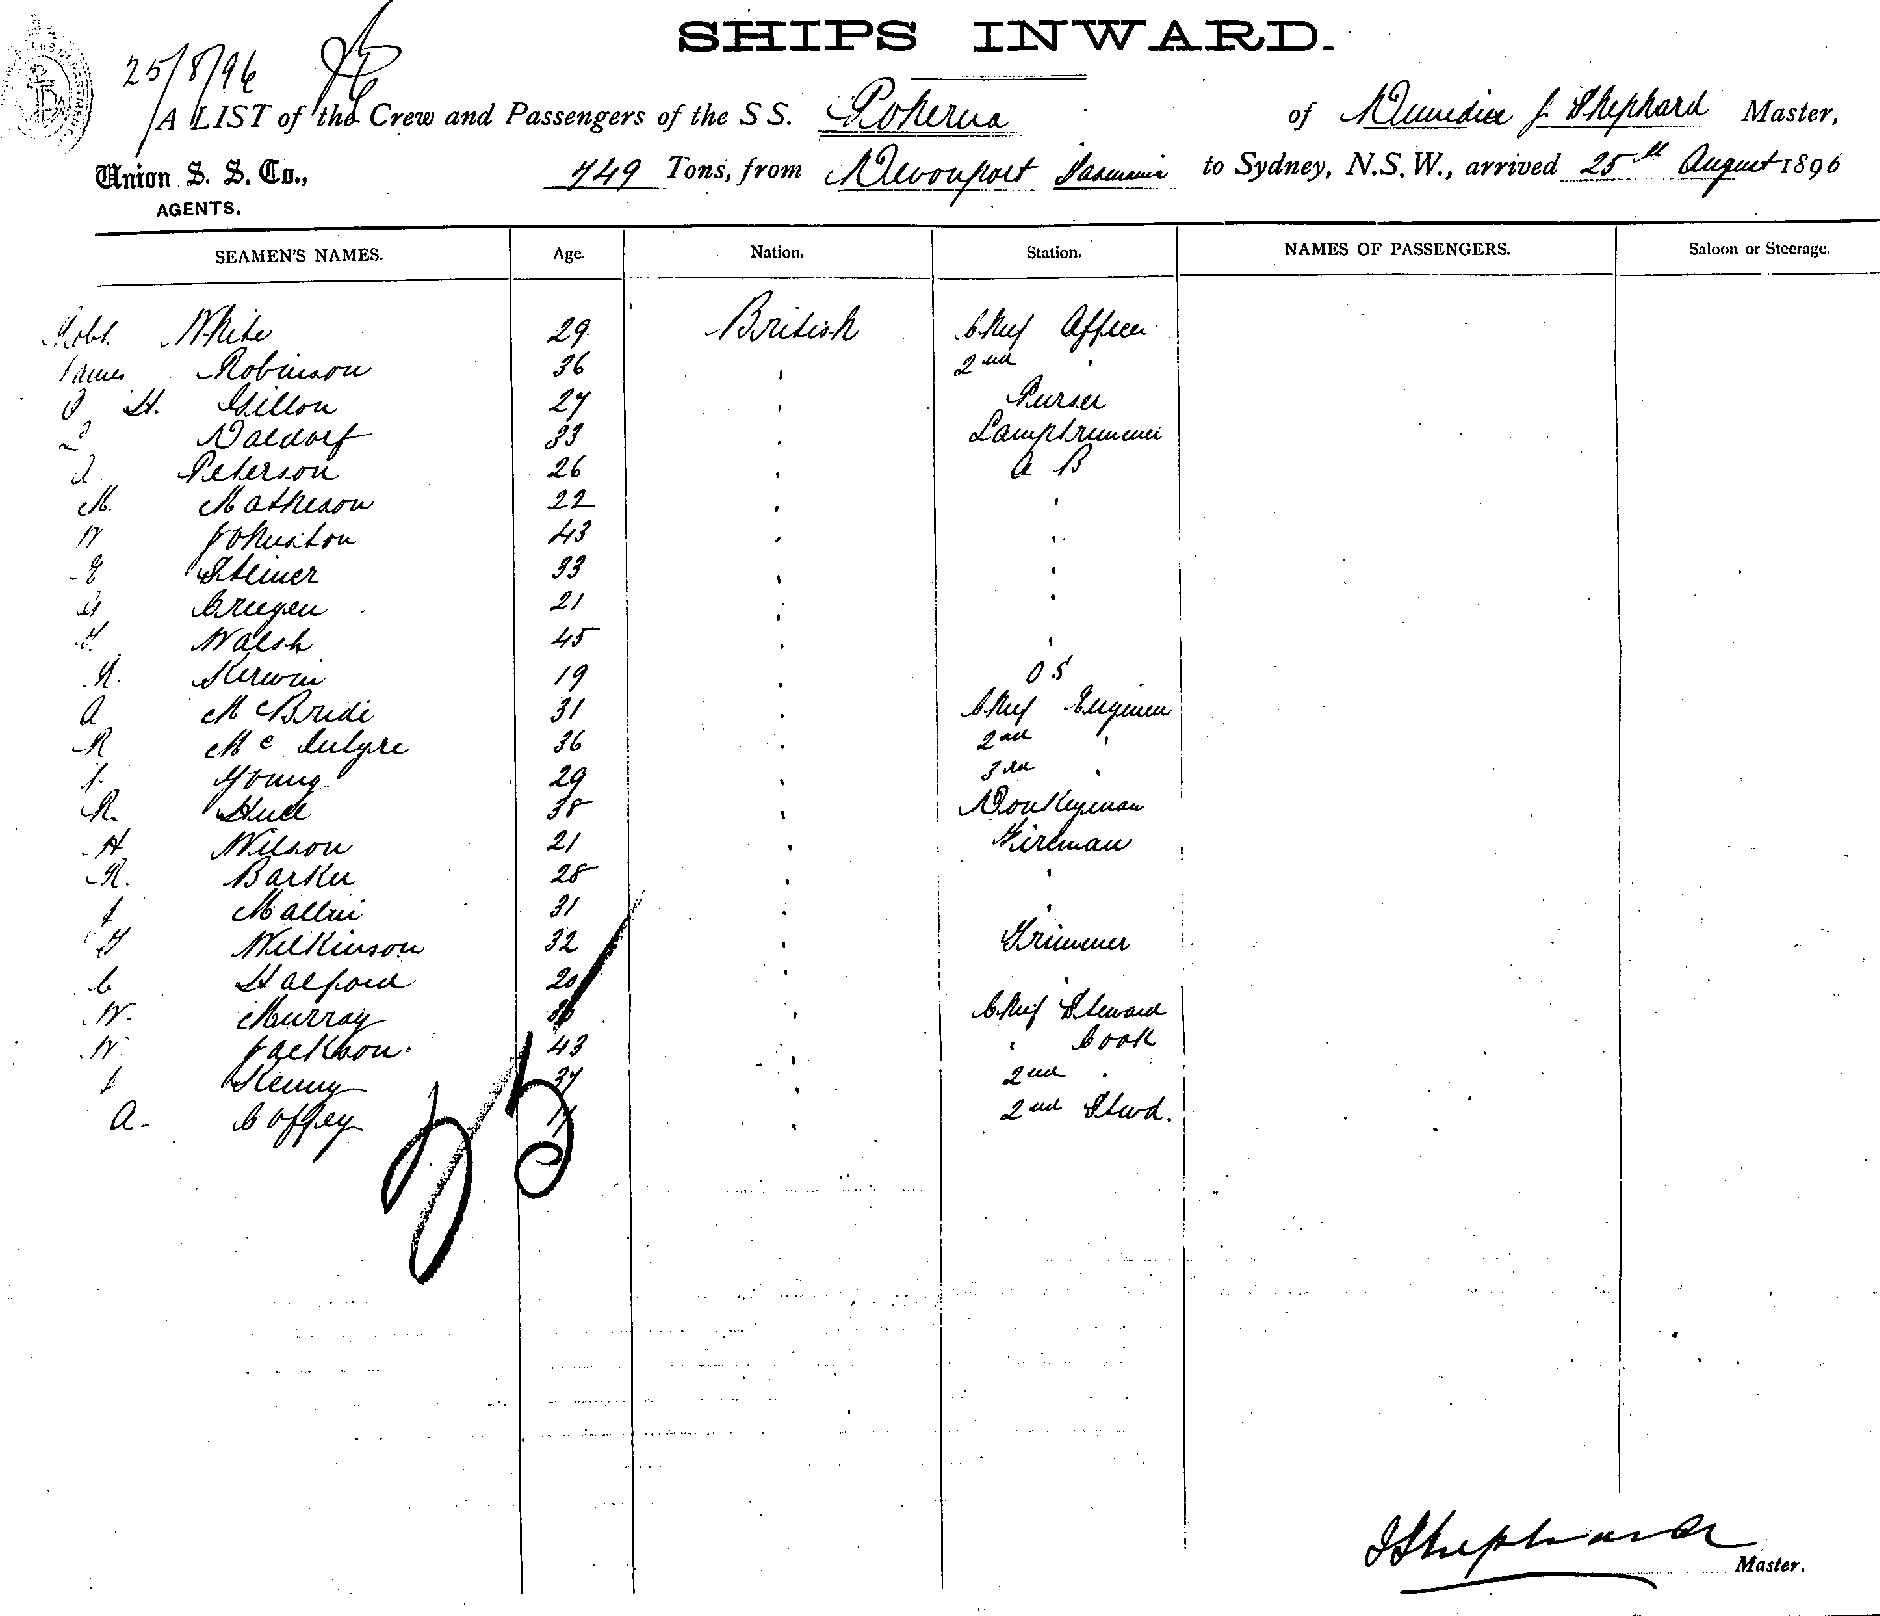 SHIPS INWARD.
25/8/96
A LIST of the Crew and Passengers of the S S. Poherua of Dunedin J. Shephard Master,
Union S. S. Co., 749 Tons, from Devonport Tasmania to Sydney, N.S.W., arrived 25th August 1896
AGENTS.
SEAMEN'S NAMES. Age. Nation. Station. NAMES OF PASSENGERS. Saloon or Steerage.
Robt. White 29 British Chief Officer
James Robinson 36 " 2nd "
H. Gillon 27 " Purser
Waldorf 33 " Lamptrimmer
Peterson 26 " A B
M. Matheson 22 " "
W Johnston 43 " "
E Steiner 33 " "
Creegen 21 " "
T. Walsh 45 " "
R. Kerwin 19 " O S
A McBride 31 " Chief Engineer
R McIntyre 36 " 2nd "
J. Young 29 " 3rd "
R. Hull 38 " Donkeyman
H Wilson 21 " Fireman
R. Barker 28 " "
J Mallin 31 " "
T Wilkinson 32 " Trimmer
C Halford 20 " "
W. Murray " Chief Steward
W. Jackson 43 " " Cook
J Kenny 37 " 2nd "
A. Coffey " 2nd Stwd.
25
J Shephard
Master.